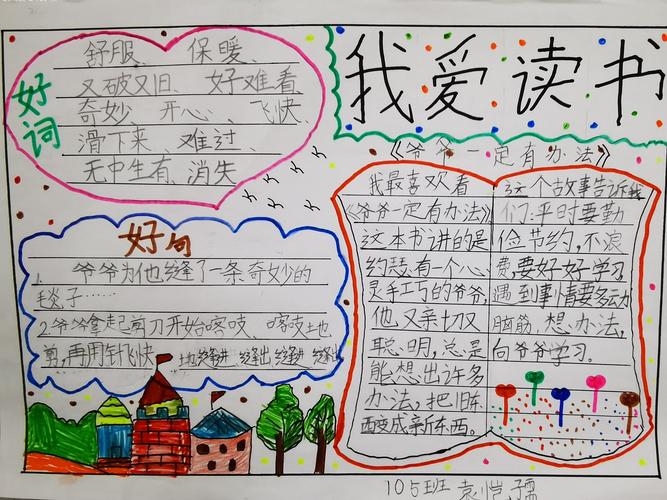 我爱读书
好词
舒服、保暖、
又破又旧、好难看、
奇妙、开心、飞快、
滑下来、难过、
无中生有、消失
好句
1. 爷爷为他缝了一条奇妙的
毯子……
2.爷爷拿起剪刀开始喀吱、喀吱地
剪,再用针飞快地缝进缝出缝进缝出
《爷爷一定有办法》
我最喜欢看
《爷爷一定有办法》
这本书讲的是
约瑟有一个心
灵手工巧的爷爷,
他又亲切又
聪明,总是
能想出许多
办法,把旧东
西变成新东西。
这个故事告诉我
们:平时要勤
俭节约,不浪
费,要好好学习,
遇到事情要多动
脑筋,想办法,
向爷爷学习。
105班 袁恺孺